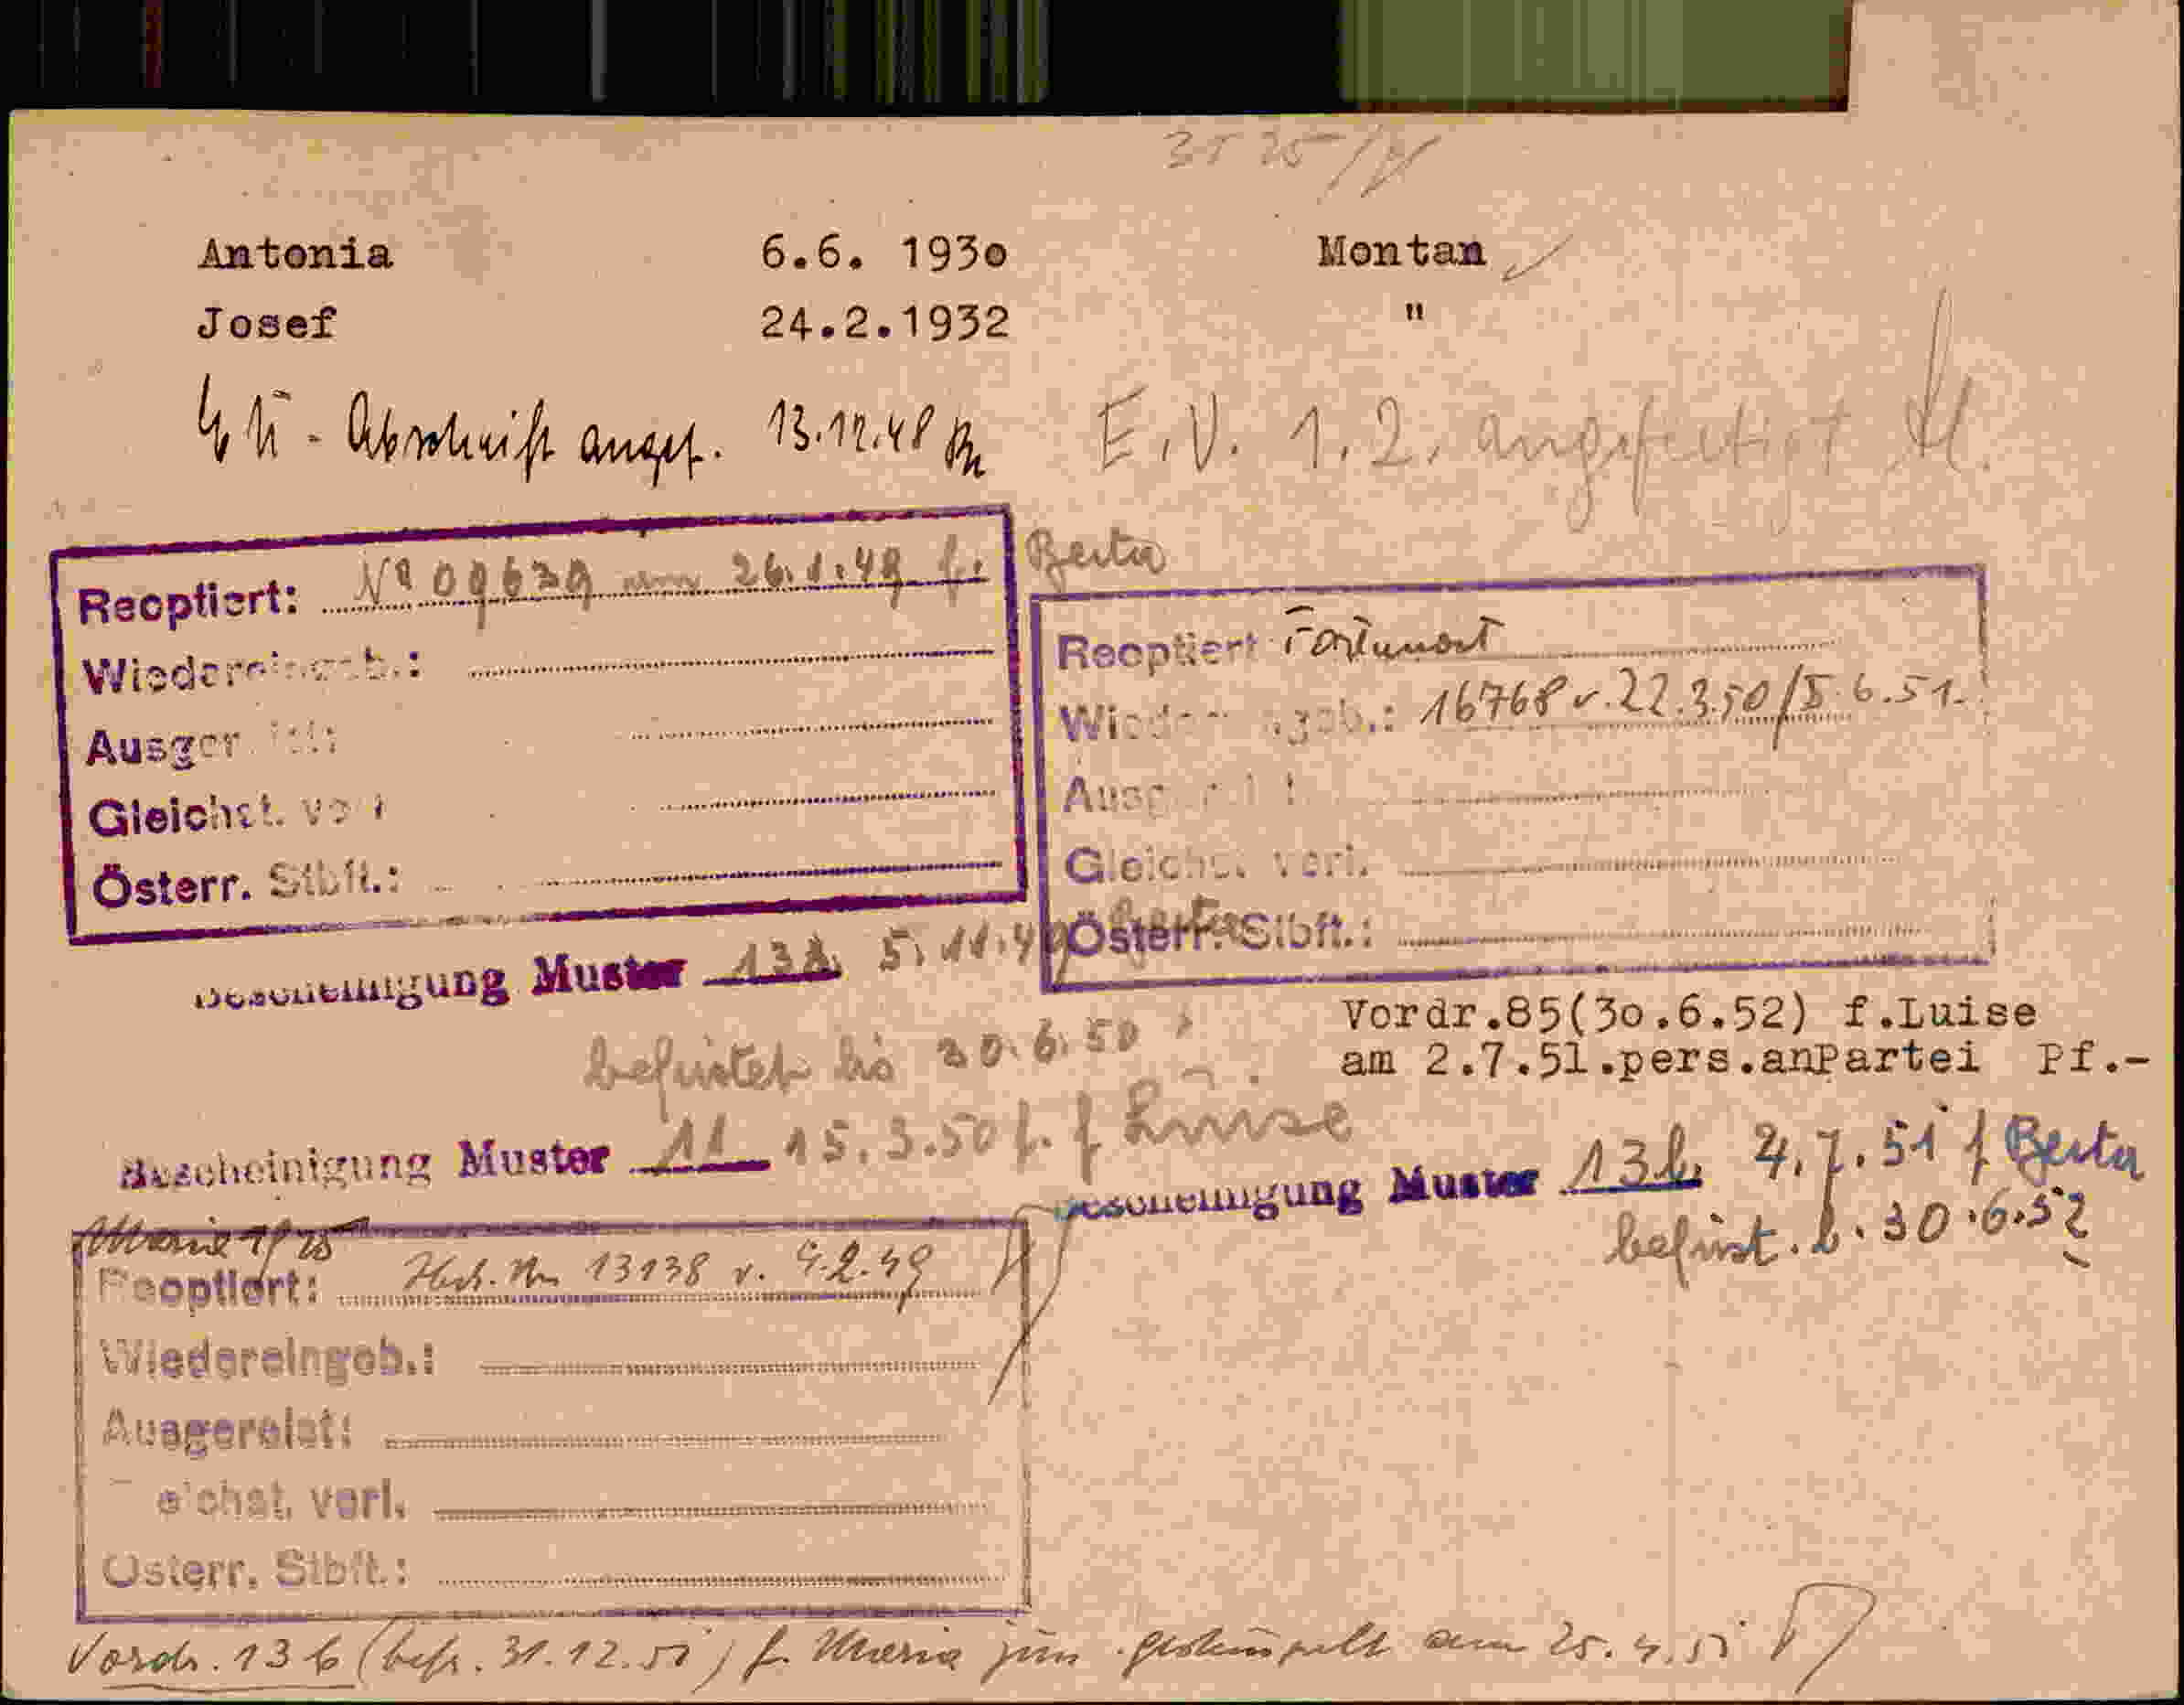 Antonia 6.6. 1930 Montan
Josef 24.2.1932 "
Abschrift angef. 13.12.48 E.V. 1.2. angefertigt
Reoptiert: Nº 09639 am 26.1.49 f. Berta
Wiedereingeb.:
Ausgereist:
Gleichst. verl.
Österr. Stbft.:
Reoptiert Fortunat
Wiedereingeb.: 16768 v. 22.3.50/5.6.51.
Ausgereist:
Gleichst. verl.
Österr. Stbft.:
Bescheinigung Muster 13a 5.11.49 Berta
befristet bis 30.6.50
Vordr.85(30.6.52) f.Luise
am 2.7.51.pers.anPartei Pf.-
Bescheinigung Muster 11 15.3.50 f. Luise
Bescheinigung Muster 13b. 4.7.51 f Berta
befrist. b. 30.6.52
Marie
Reoptiert: 13138 v. 9.2.49
Wiedereingeb.:
Ausgereist:
Gleichst. verl.
Österr. Stbft.:
Vordr. 13b (befr. 31.12.51) f. Maria jun. gestempelt am 25.4.51